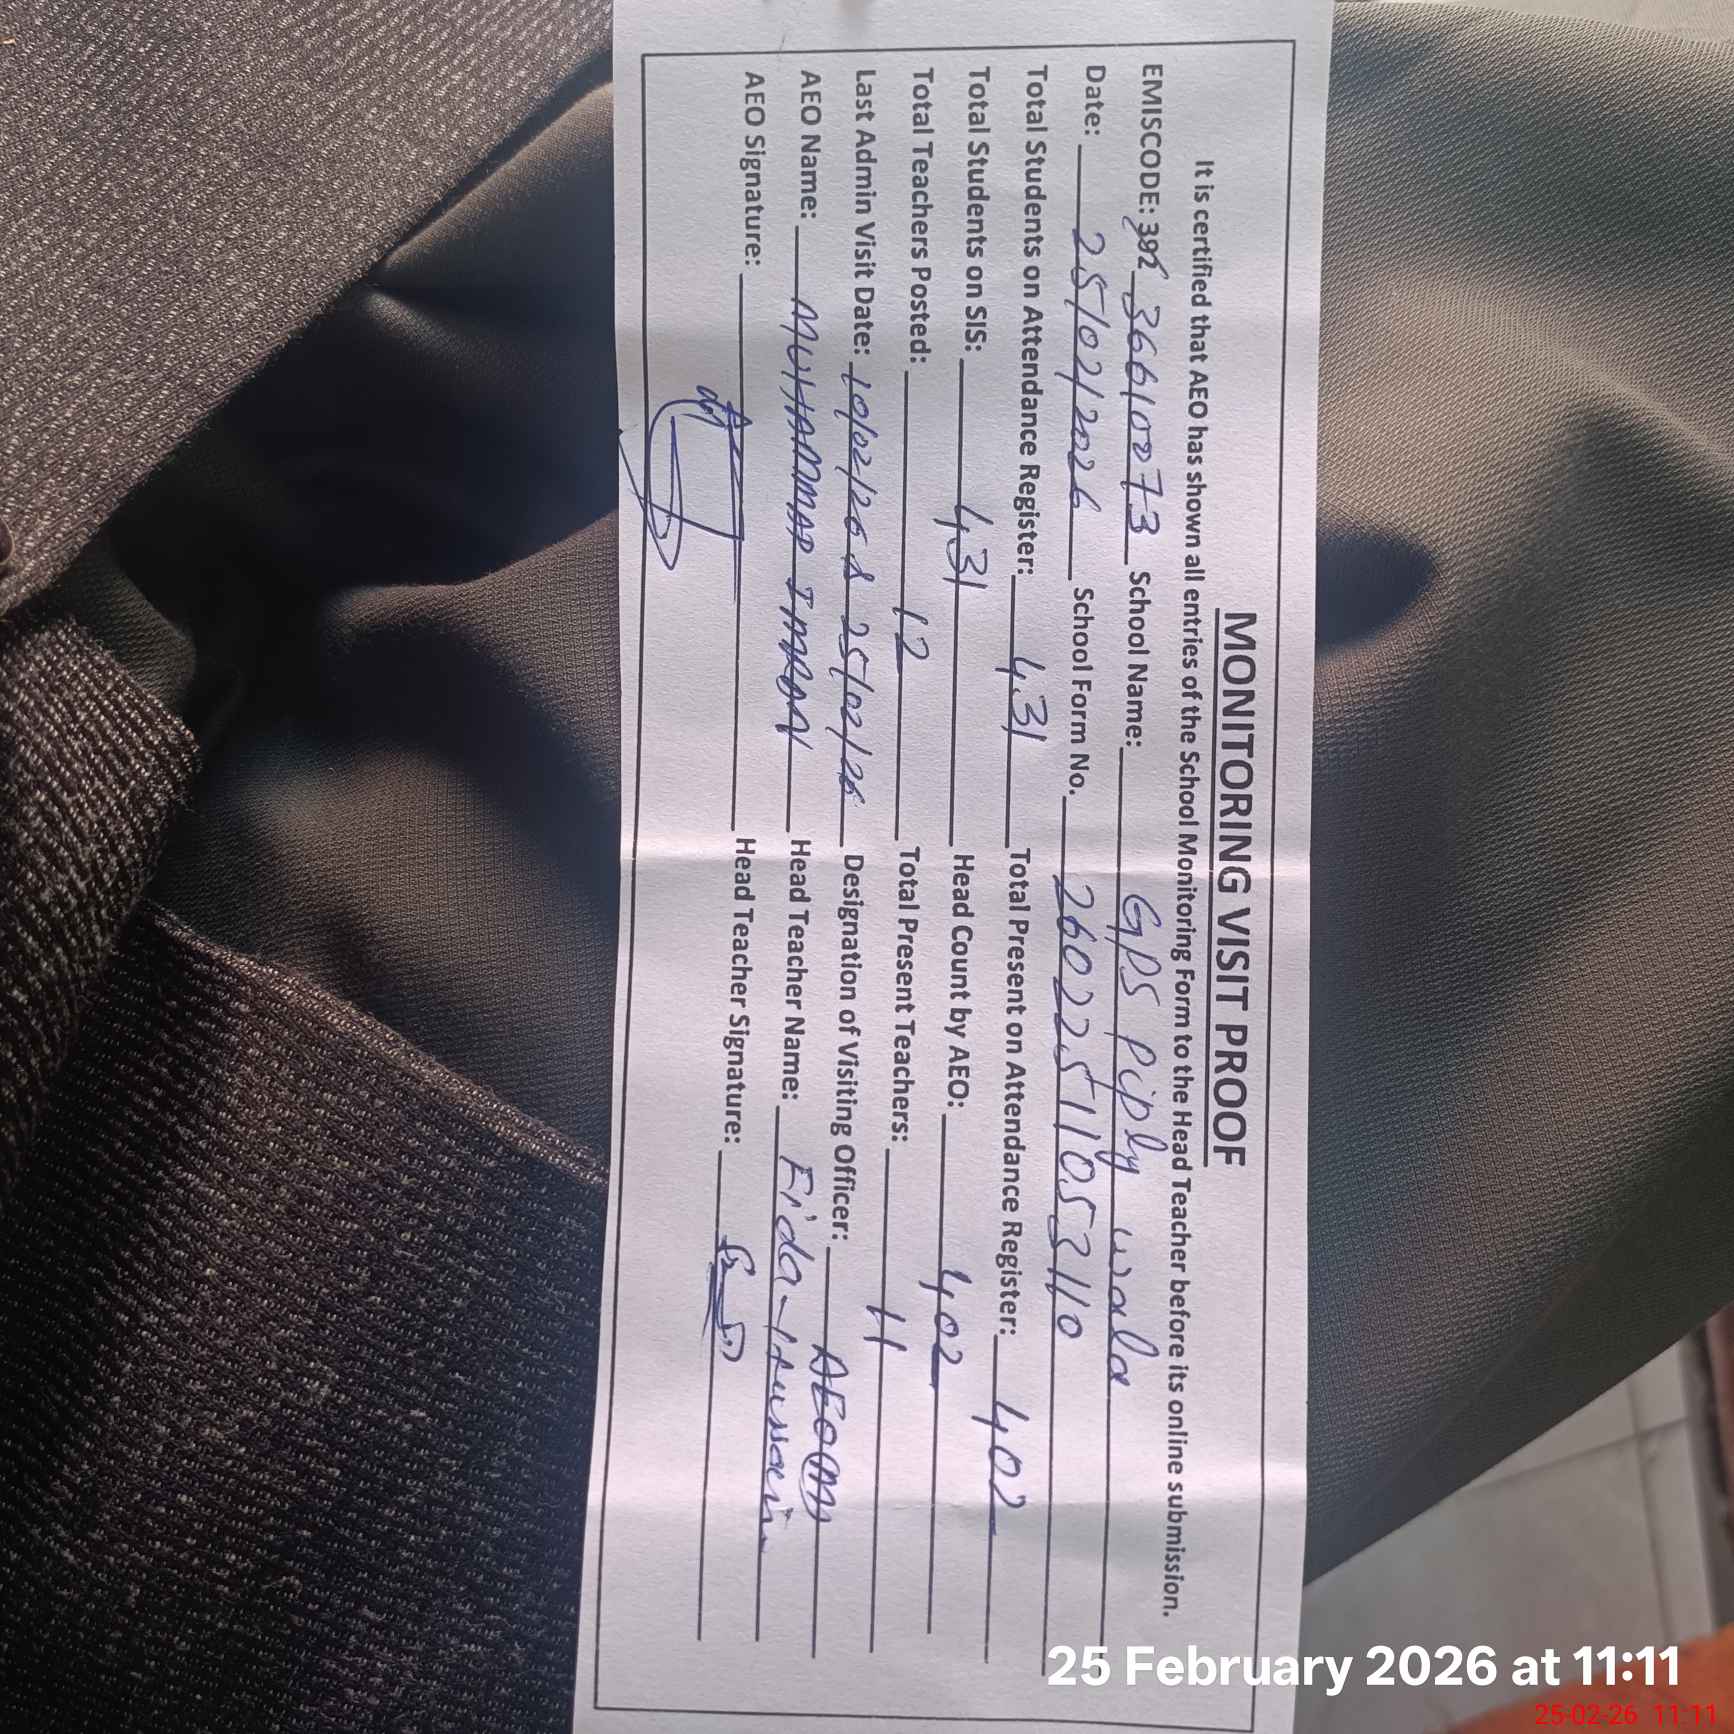 MONITORING VISIT PROOF
It is certified that AEO has shown all entries of the School Monitoring Form to the Head Teacher before its online submission.
EMISCODE: 392 36610073 School Name: GPS Piply wala
Date: 25/02/2026 School Form No. 26022511053110
Total Students on Attendance Register: 431 Total Present on Attendance Register: 402
Total Students on SIS: 431 Head Count by AEO: 402
Total Teachers Posted: 12 Total Present Teachers: 11
Last Admin Visit Date: 10/02/26 & 25/02/26 Designation of Visiting Officer: AEO(M)
AEO Name: MUHAMMAD IMRAN Head Teacher Name: Fida-Hussain
AEO Signature: Head Teacher Signature:
25 February 2026 at 11:11
25-02-26 11:11